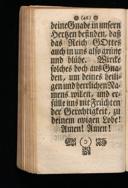 (46)
deine Gnade in unsern
Hertzen befinden, daß
das Reich GOttes
auch in uns also grüne
und blühe. Wircke
solches doch aus Gna-
den, um deines heili-
gen und herrlichen Na-
mens willen, und er-
fülle uns mit Früchten
der Gerechtigkeit, zu
deinem ewigen Lobe!
Amen! Amen!